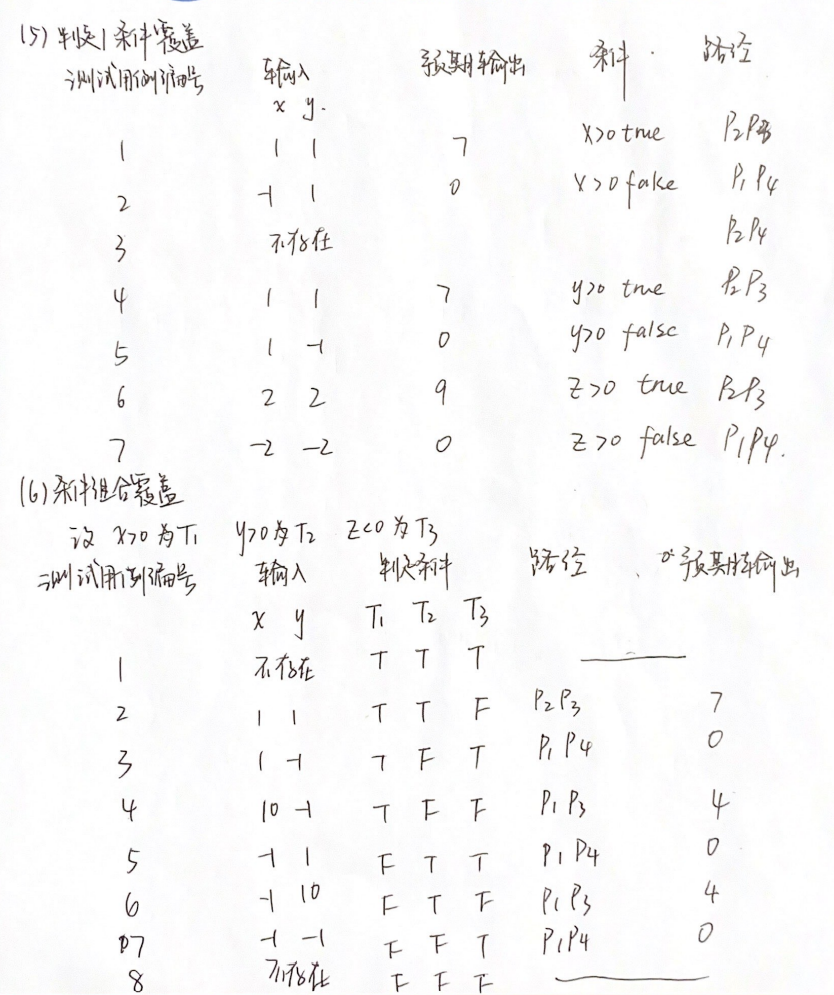 (5) 判定/条件覆盖
测试用例编号 输入 预期输出 条件 路径
x y
1 1 1 7 x>0 true P2P3
2 -1 1 0 x>0 false P1P4
3 不存在 P2P4
4 1 1 7 y>0 true P2P3
5 1 -1 0 y>0 false P1P4
6 2 2 9 z>0 true P2P3
7 -2 -2 0 z>0 false P1P4.
(6) 条件组合覆盖
设 x>0 为T1 y>0 为T2 z<0 为T3
测试用例编号 输入 判定条件 路径 预期输出
x y T1 T2 T3
1 不存在 T T T
2 1 1 T T F P2P3 7
3 1 -1 T F T P1P4 0
4 10 -1 T F F P1P3 4
5 -1 1 F T T P1P4 0
6 -1 10 F T F P1P3 4
7 -1 -1 F F T P1P4 0
8 不存在 F F F